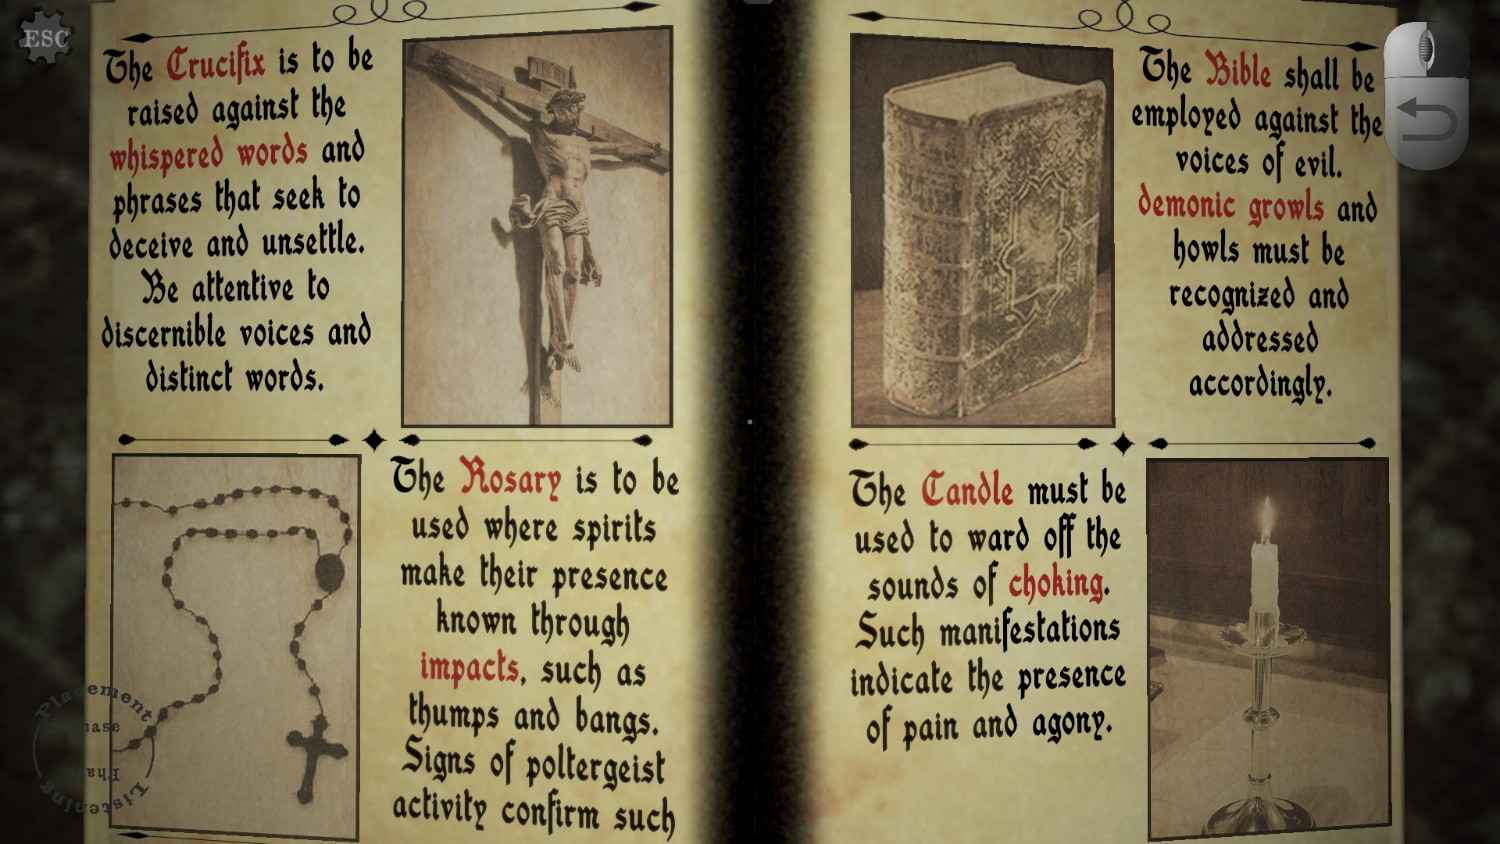 ESC
The Crucifix is to be
raised against the
whispered words and
phrases that seek to
deceive and unsettle.
Be attentive to
discernible voices and
distinct words.
The Rosary is to be
used where spirits
make their presence
known through
impacts, such as
thumps and bangs.
Signs of poltergeist
activity confirm such
The Bible shall be
employed against the
voices of evil.
demonic growls and
howls must be
recognized and
addressed
accordingly.
The Candle must be
used to ward off the
sounds of choking.
Such manifestations
indicate the presence
of pain and agony.
Placement
Listening